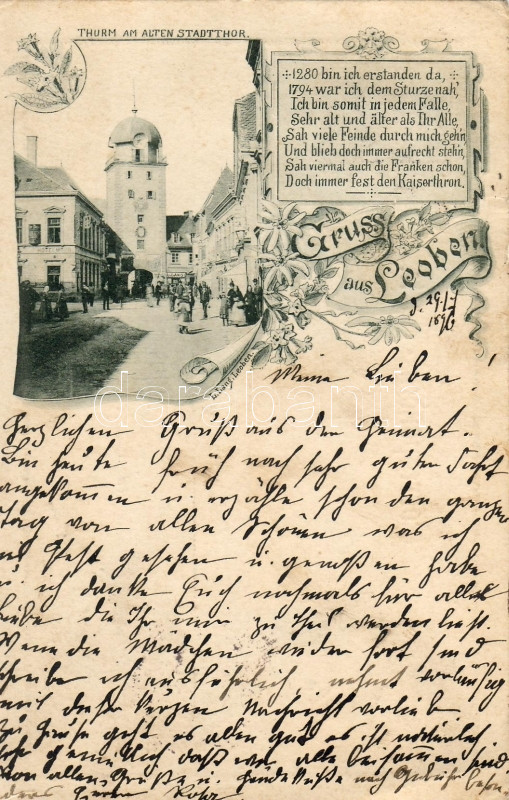 THURM AM ALTEN STADTTHOR.
1280 bin ich erstanden da,
1794 war ich dem Sturze nah',
Ich bin somit in jedem Falle,
Sehr alt und älter als Ihr Alle,
Sah viele Feinde durch mich geh'n,
Und blieb doch immer aufrecht steh'n,
Sah viermal auch die Franken schon,
Doch immer fest den Kaiserthron.
Gruss
aus Leoben
29.
Leoben.
Meine Lieben!
Herzlichen Gruß aus der Heimat.
Bin heute früh nach sehr guter Fahrt
angekommen u. erzähle schon den ganzen
Tag von allen Schönen was ich
Pest gesehen u. genoßen habe
u. ich danke Euch nochmals für alle
Liebe die Ihr mir zu Theil werden ließt.
Wenn die Mädchen wieder fort sind
schreibe ich ausführlich nehmt vorläufig
mit dieser kurzen Nachricht vorlieb
zu Hause geht es allen gut es ist natürlich
daß wir alle beisammen sind
Von allen Grüße u. Handküße nach
ders Herrn
darabanth